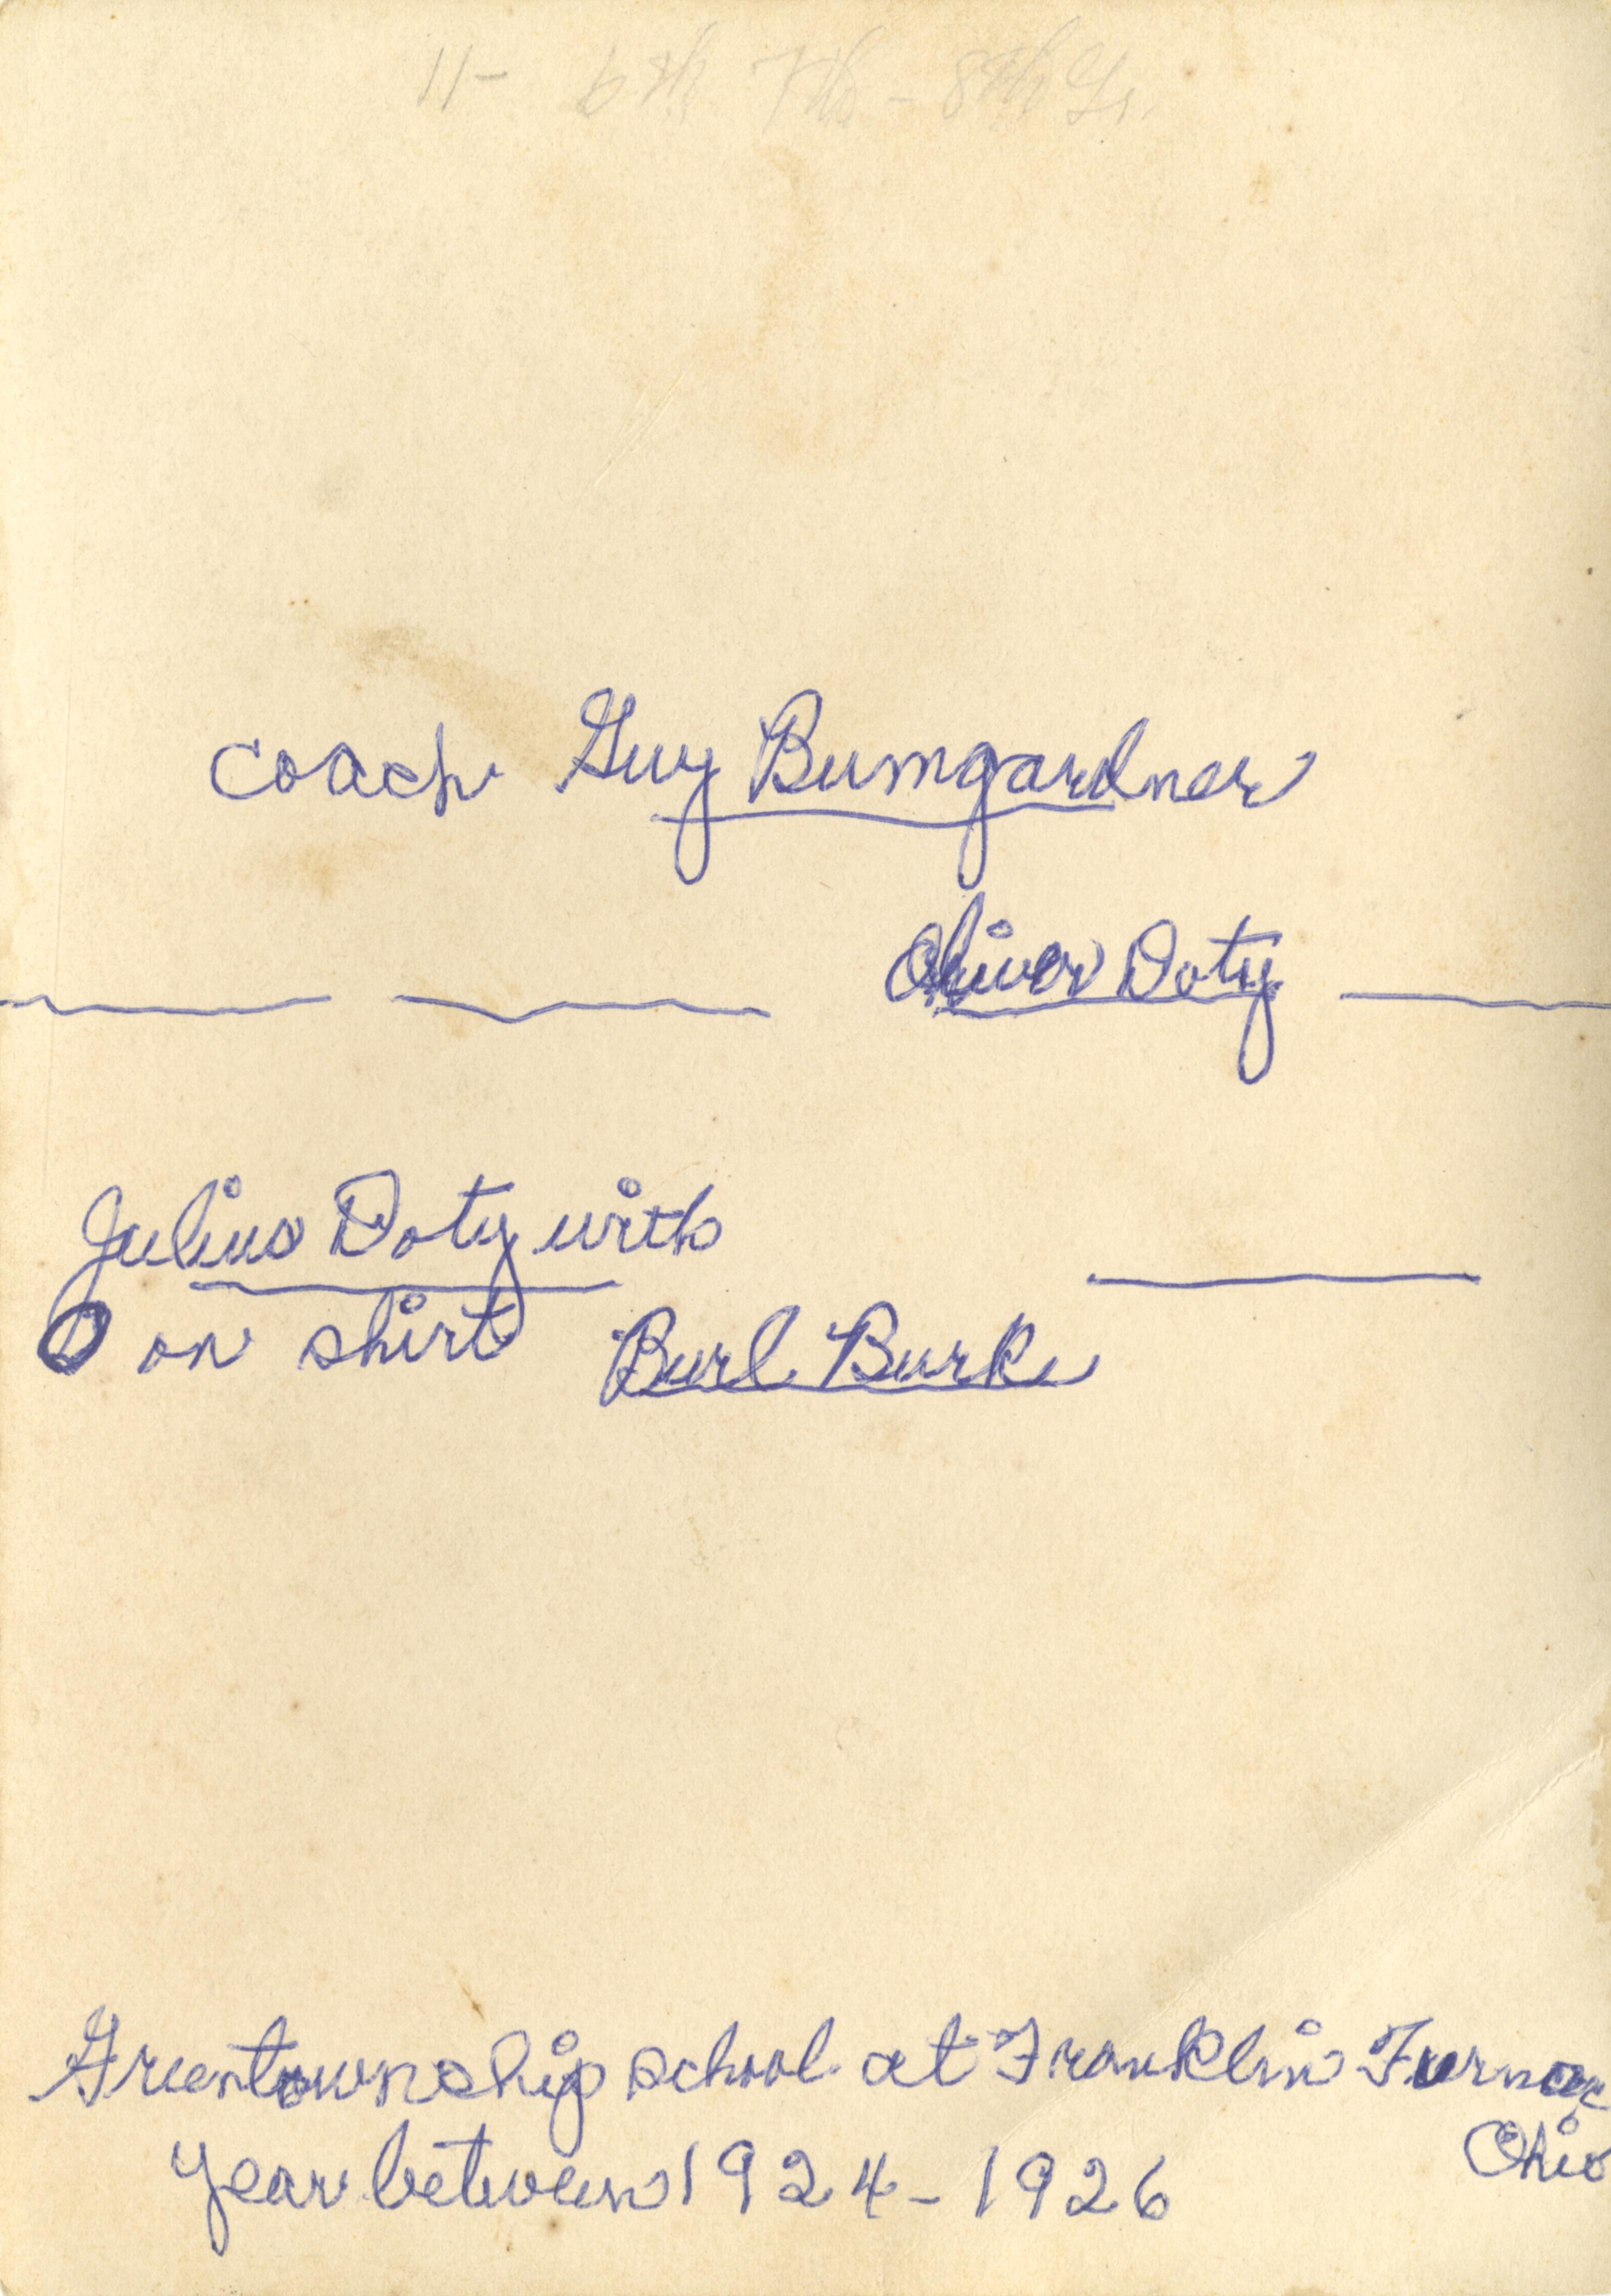 11- 6th 7th - 8th Gr.
coach Guy Bumgardner
Oliver Doty
Julius Doty with
O on shirt Burl Burke
Greentownship school at Franklin Furnac
Ohio
year between 1924-1926